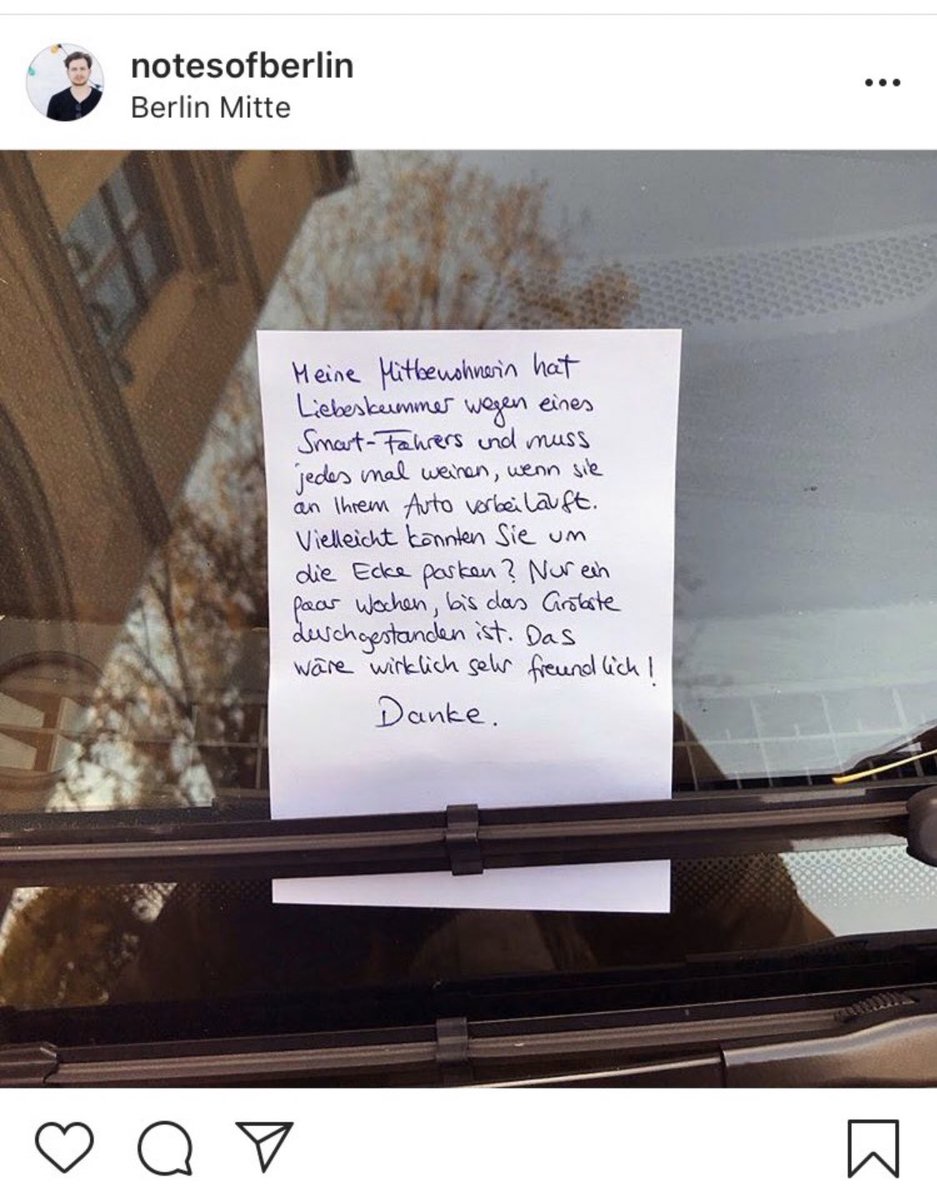 notesofberlin
Berlin Mitte
Meine Mitbewohnerin hat
Liebeskummer wegen eines
Smart-Fahrers und muss
jedes mal weinen, wenn sie
an Ihrem Auto vorbeiläuft.
Vielleicht könnten Sie um
die Ecke parken? Nur ein
paar Wochen, bis das Gröbste
durchgestanden ist. Das
wäre wirklich sehr freundlich!
Danke.